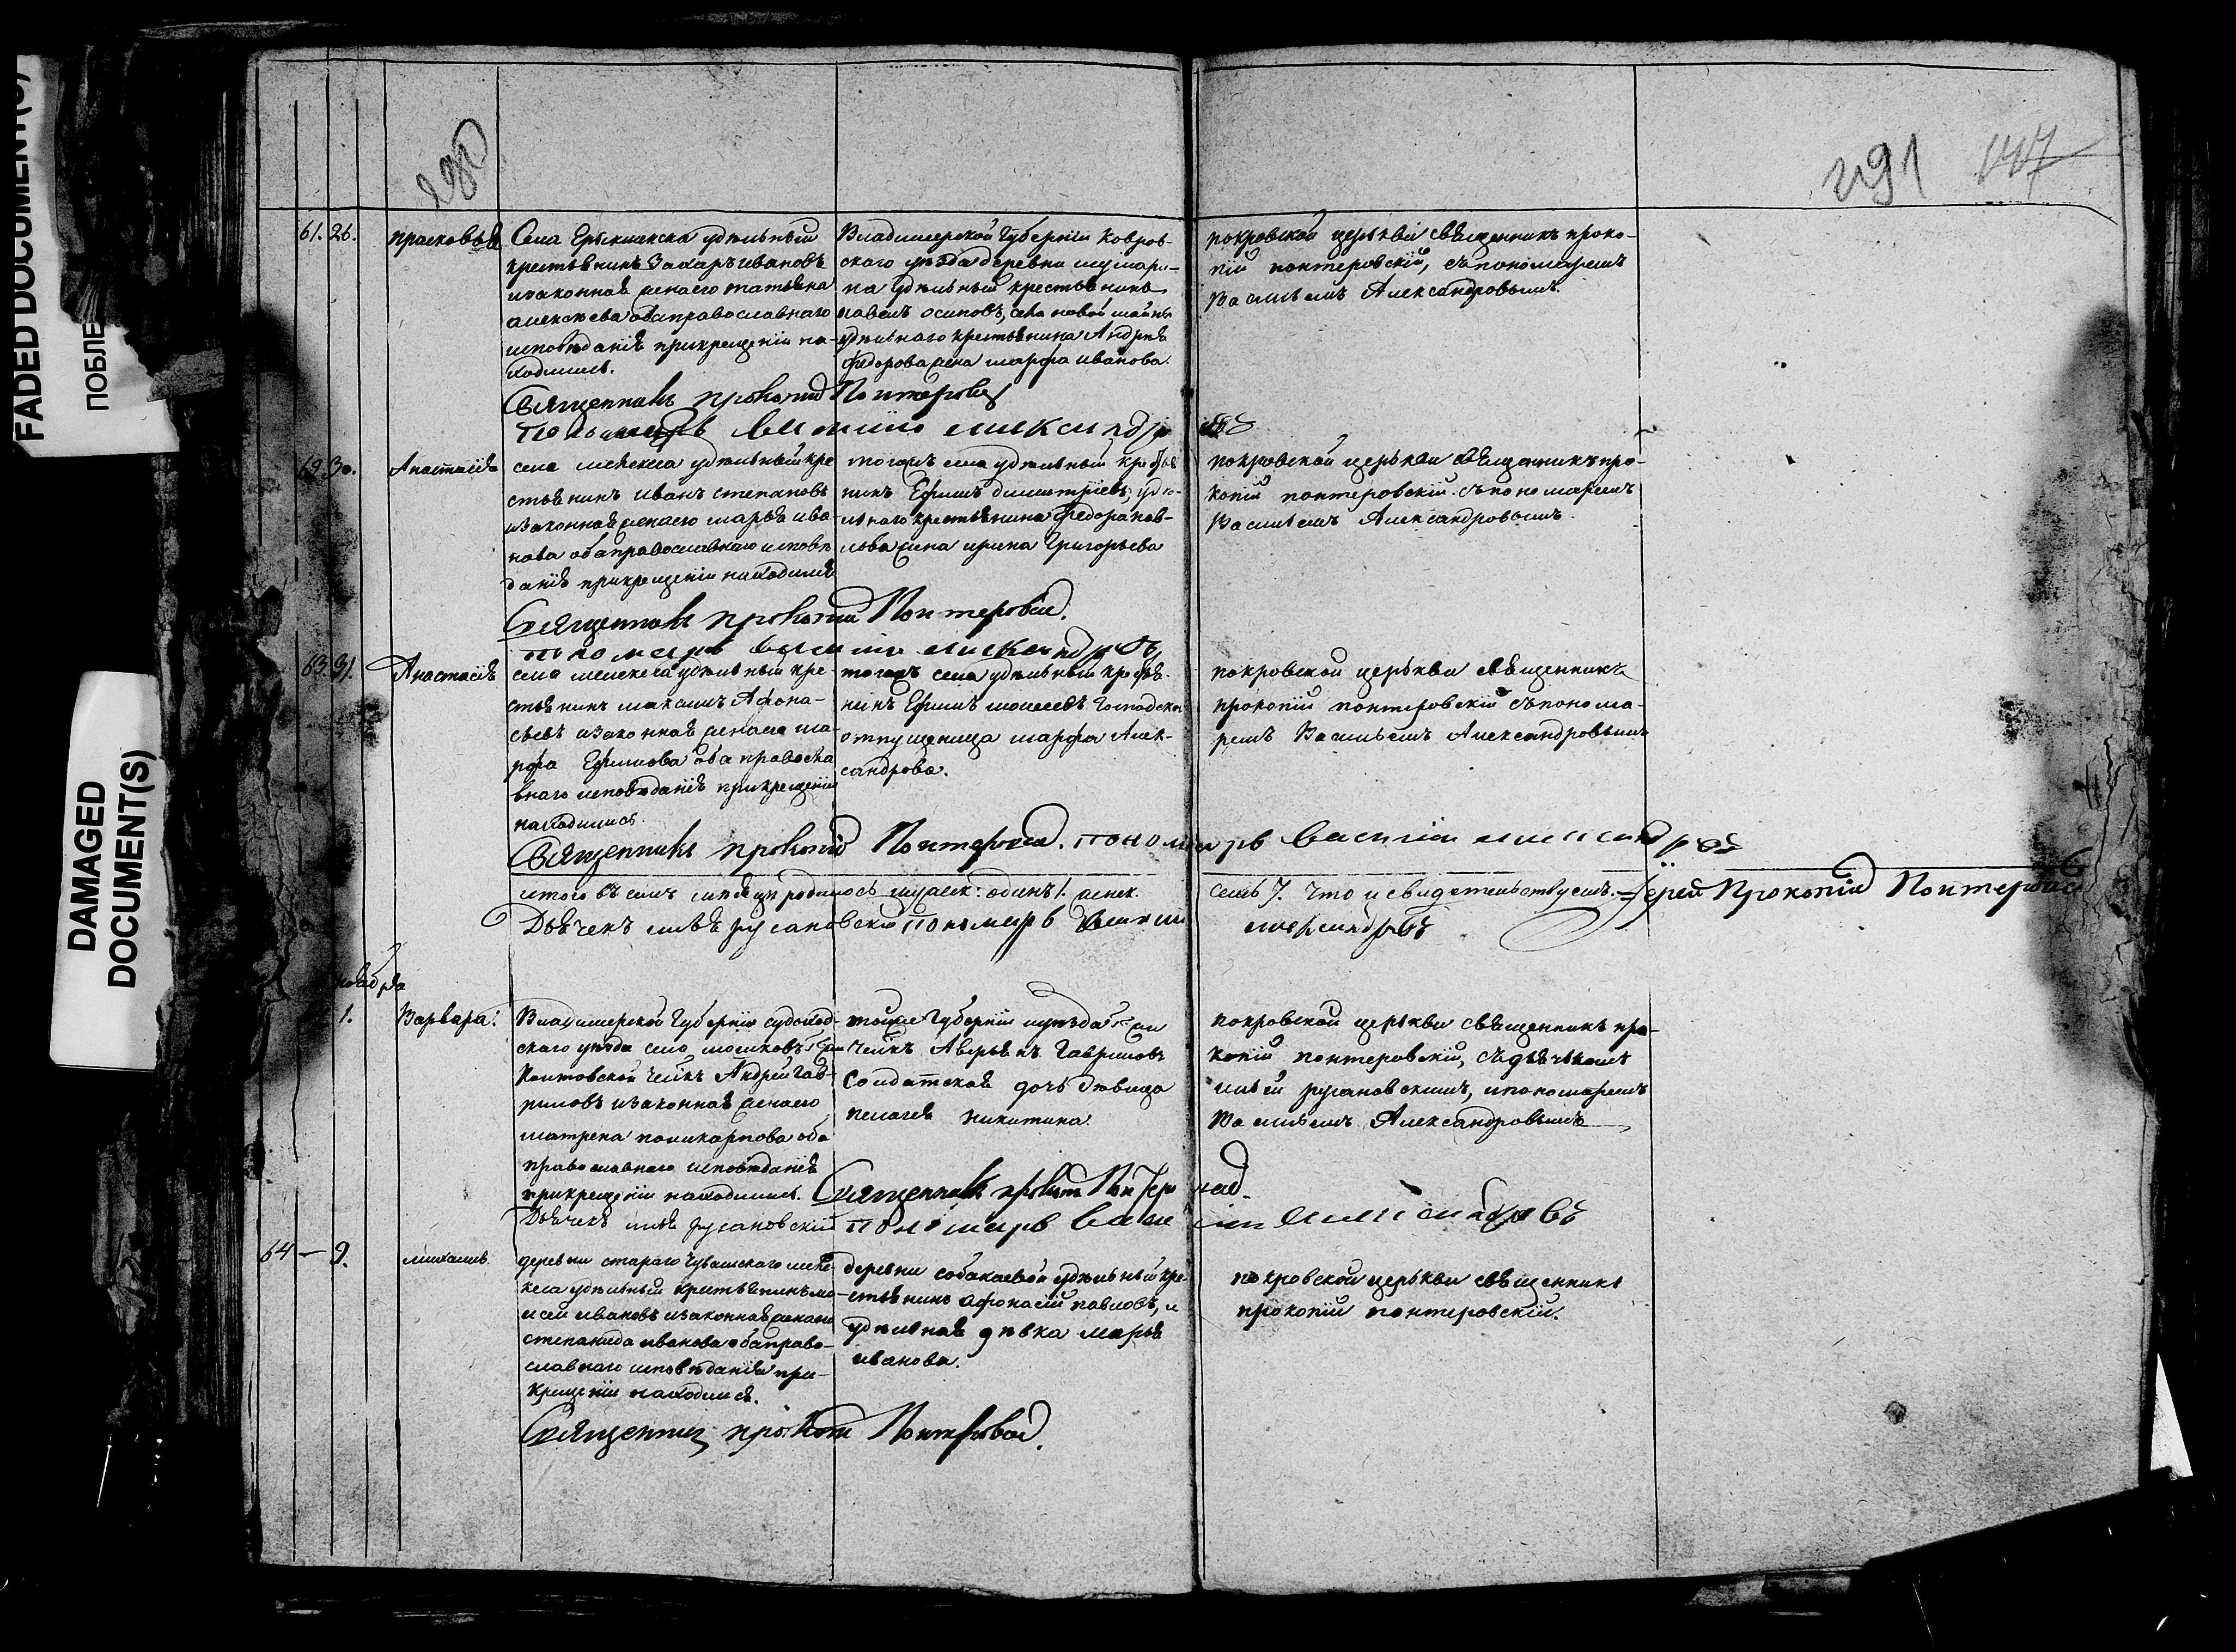 FADED DOCUMENT(S)
ПОБЛЕ
DAMAGED
DOCUMENT(S)
290
291
147
61. 26.
Прасковья
Села Ерыклинска удѣльный
крестьянинъ Захаръ Ивановъ
изаконная женаего Татьяна
Алексѣева обаправославнаго
исповѣданія прикрещеніи на-
ходились.
Владимерской Губерніи Ковров-
скаго уѣзда деревни
удѣльный крестьянинъ
Павелъ Осиповъ, села новой майны
удѣльнаго крестьянина Андрея
Федорова жена Марфа Иванова.
покровской церькви священникъ проко-
пій понтеровскій, съпономаремъ
Васильемъ Александровымъ.
Священникъ прокопій Понтеровск
Пономарь василию александровъ
62. 30.
Анастасія
села мелекеса удѣльный кре
стьянинъ Иванъ степановъ
изаконная женаего марья ива-
нова обаправославнаго исповѣ
данія прикрещеніи находились
тогожъ села удѣльный крестья
нинъ Ефимъ димитріевъ, удѣ-
льнаго крестьянина федора пав-
лова жена ирина Григорьева
покровской церькви священникъ про-
копій понтеровскій съпономаремъ
Васильемъ Александровымъ.
Священникъ прокопій Понтеровскій.
пономарь василіи александровъ
63. 31.
Анастасія
села мелекеса удѣльный кре-
стьянинъ максимъ Афона-
сьевъ изаконная женаего ма-
рфа Ефимова оба правосла
внаго исповѣданія прикрещеніи
находились.
тогожъ села удѣльный крестья-
нинъ Ефимъ моисеевъ господская
отпущеница марфа Алек-
сандрова.
покровской церькви священникъ
прокопій понтеровскій съпонома-
ремъ Васильемъ Александровымъ
Священникъ прокопій Понтеровскій. пономарь василіи александровъ
итого въ семъ мѣсяцѣ родилось мужеск: одинъ 1. женск.
семь 7. Что и свидетельствуемъ. Іерей Прокопій Понтеровскій
Дьячекъ илья русановскій пономарь василіи
александровъ
ноября
1.
Варвара.
Владимерской Губерніи судогод-
скаго уѣзда села мошковъ
Андрей Гав-
риловъ изаконная женаего
матрена поликарпова оба
православнаго исповѣданія
прикрещеніи находились.
тойже Губерніи иуѣзда
Аверьянъ Гавриловъ
Солдатская дочь дѣвица
пелагея никитина.
покровской церькви священникъ про-
копій понтеровскій, съдьячькомъ
ильей русановскимъ, ипономаремъ
Васильемъ Александровымъ
Священникъ прокопій Понтеровскій.
Дьячекъ илья русановскій пономарь василіи александровъ
64 — 9.
михаилъ
деревни стараго Чувашскаго меле-
кеса удѣльный крестьянинъ мо-
исей ивановъ изаконная женаего
степанида иванова обаправо-
славнаго исповѣданія при-
крещеніи находились.
деревни собакаевой удѣльный кре-
стьянинъ афонасій павловъ, и
удѣльная дѣвка марья
иванова.
покровской церькви священникъ
прокопій понтеровскій.
Священникъ прокопій Понтеровскій.